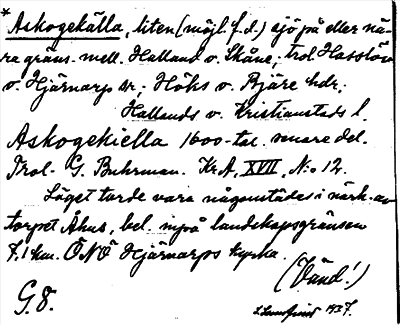 * Askogekälla, liten (möjl. f.d.) sjö på eller nä-
ra gräns. mell. Halland o. Skåne; trol. Hasslöv
o. Hjärnarp sn; Höks o. Bjäre hdr;
Hallands o. Kristianstads l.
Askogekiella 1600-tal. senare del.
Trol. G. Buhrman. Kr.A. XVII, N:o 12.
Läget torde vara någonstädes i närh. av
torpet Åhus, bel. inpå landskapsgränsen
7,1 km. ÖNÖ Hjärnarps kyrka.
(Vänd!)
G. 8.
1937.